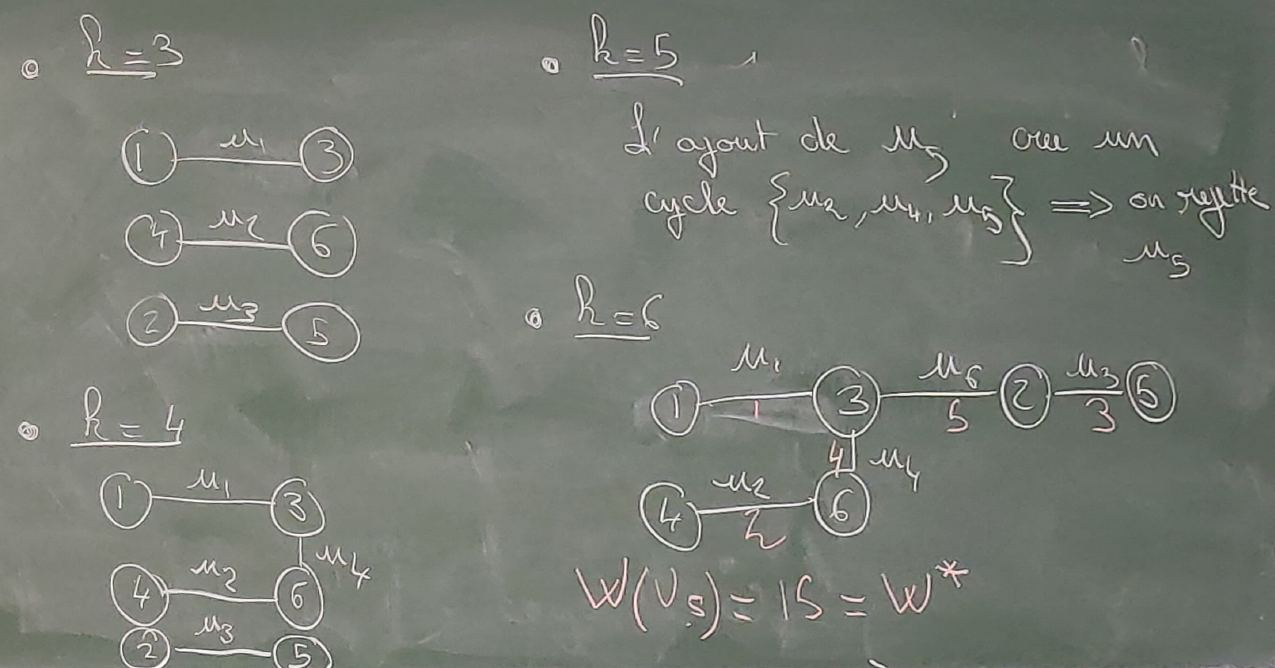 k=3
1 u₁ 3
4 u₂ 6
2 u₃ 5
k=4
1 u₁ 3
u₄
4 u₂ 6
2 u₃ 5
k=5
L'ajout de u₅ cree un
cycle {u₂, u₄, u₅} => on rejette
u₅
k=6
u₁ u₆ u₃
1 1 3 5 2 3 5
4 u₄
u₂
4 2 6
W(U₅) = 15 = W*